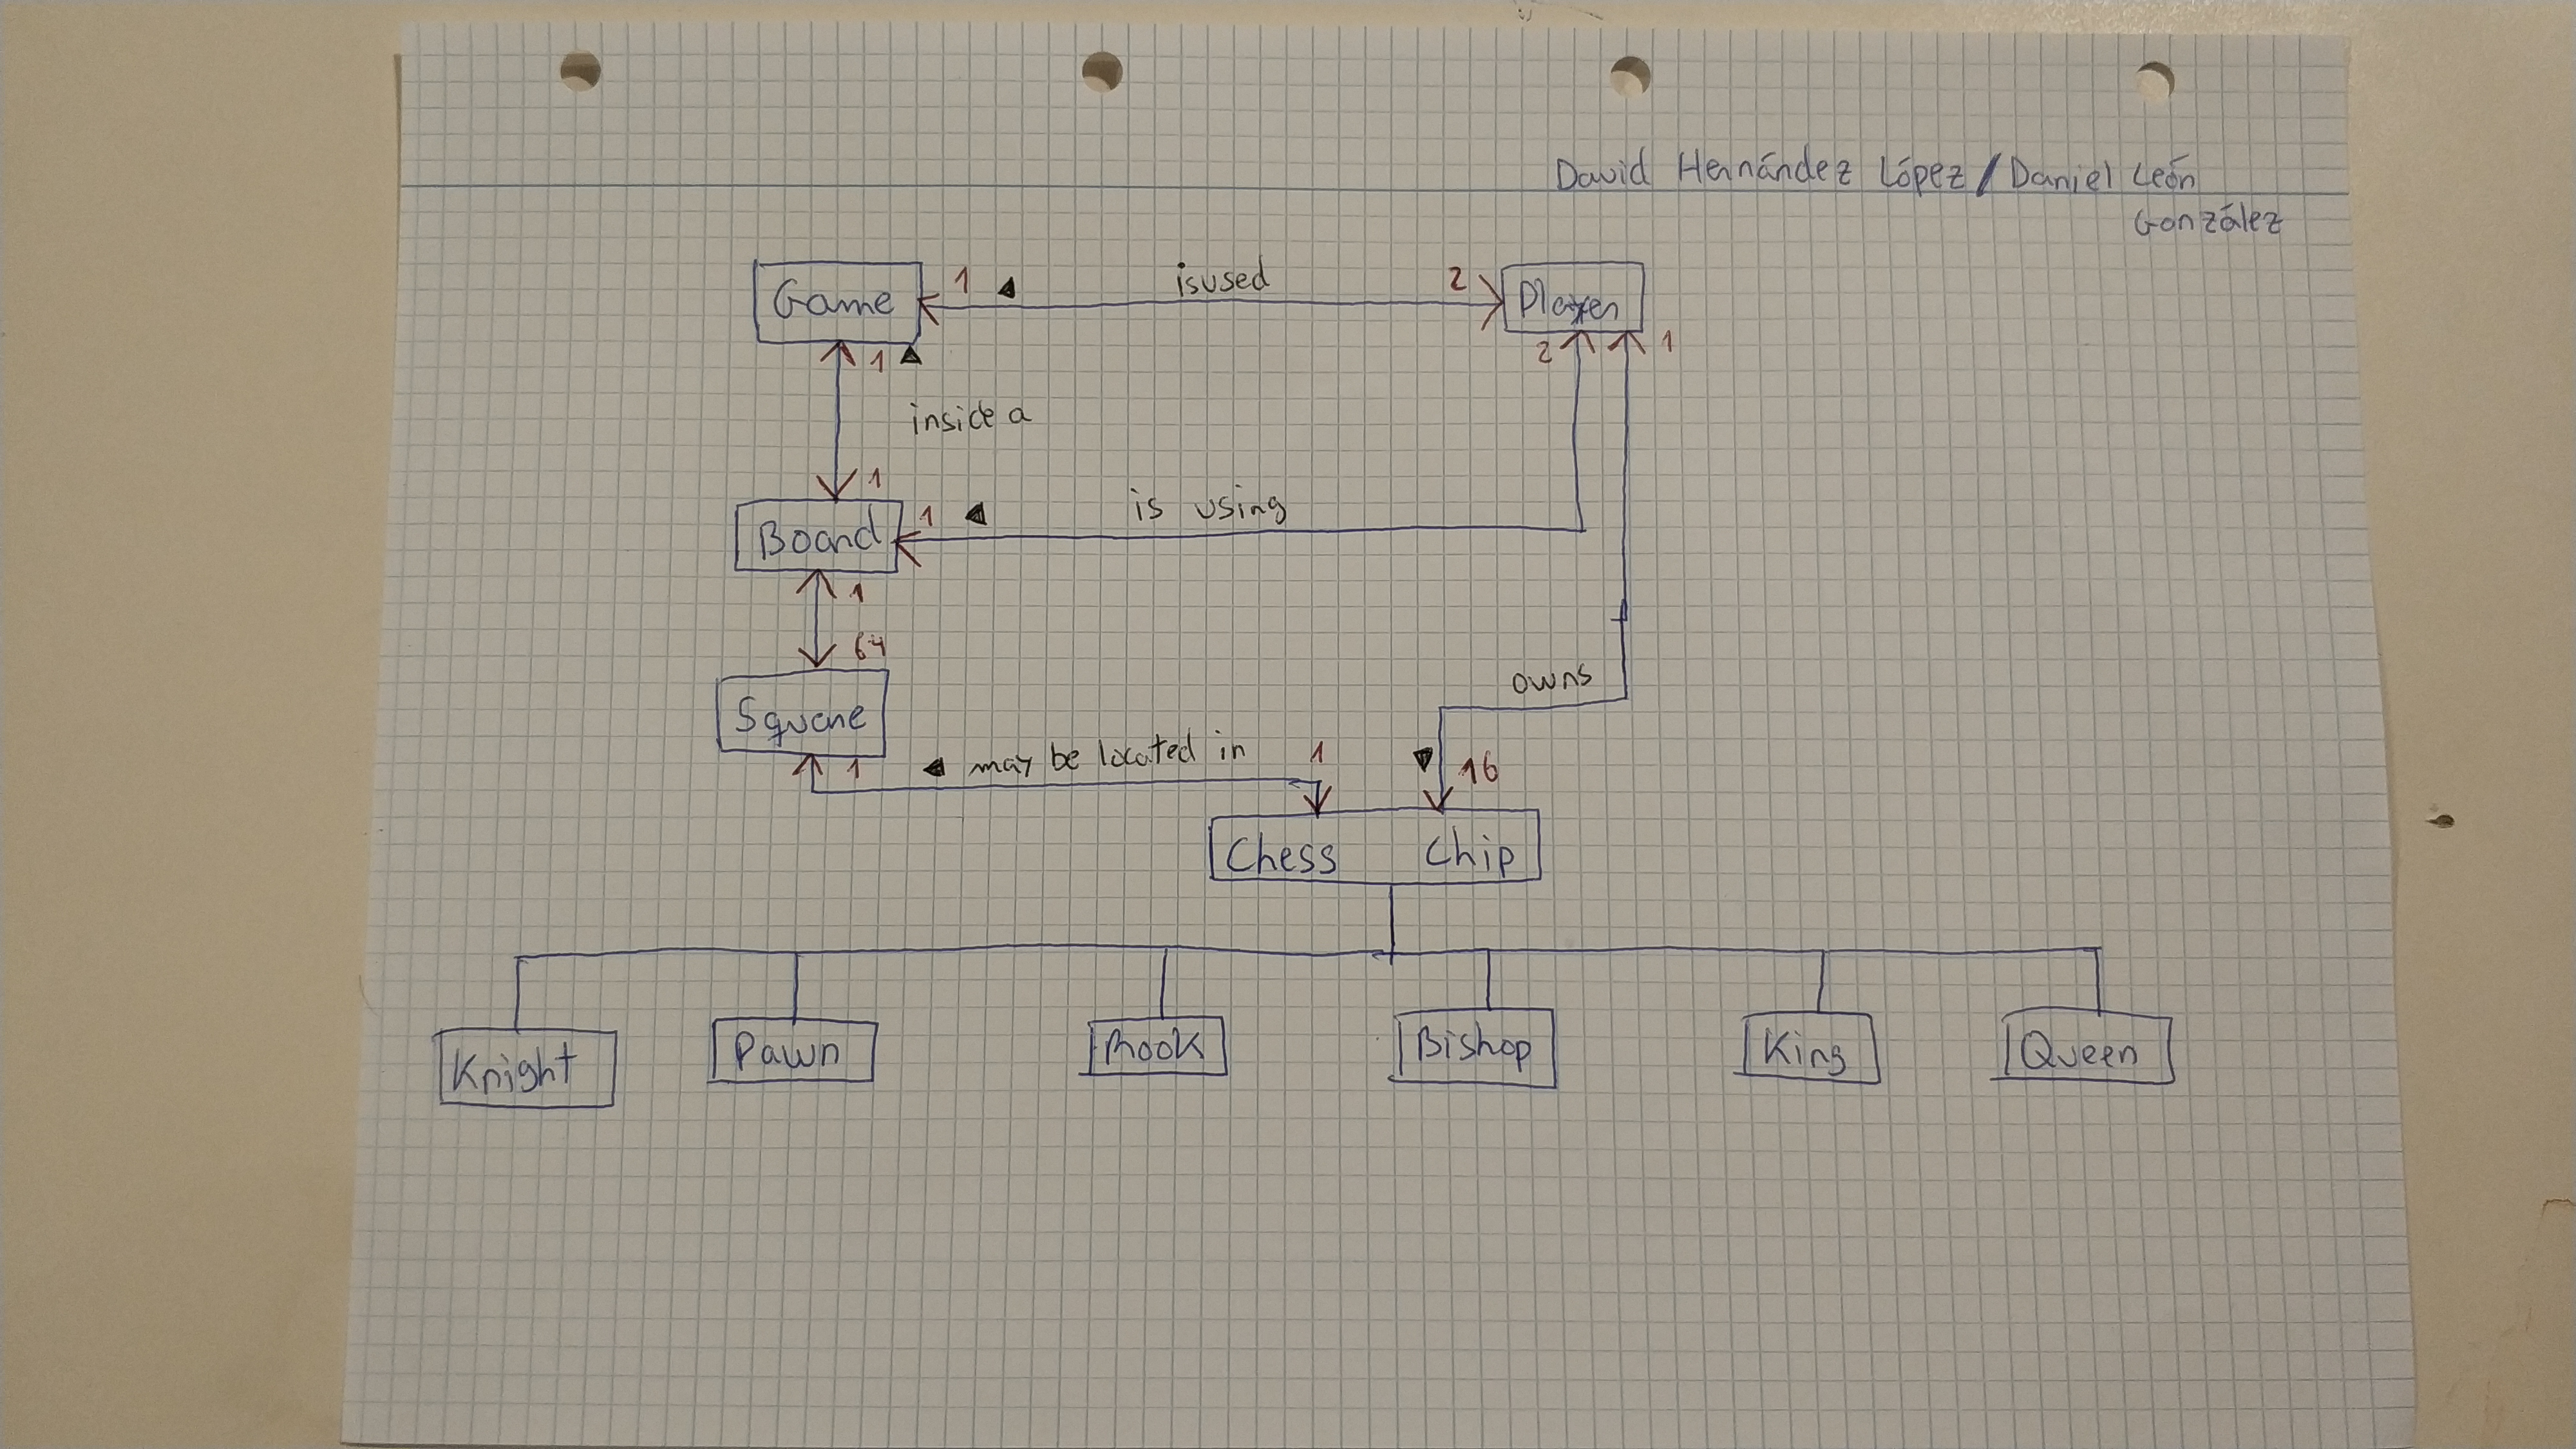 David Hernández López / Daniel León
González
Game 1 ◀ isused 2 Player
1 ▲ 2 1
inside a
1
Board 1 ◀ is using
1
64
owns
Square
1 ◀ may be located in 1 ▼ 16
Chess Chip
Knight Pawn Rook Bishop King Queen